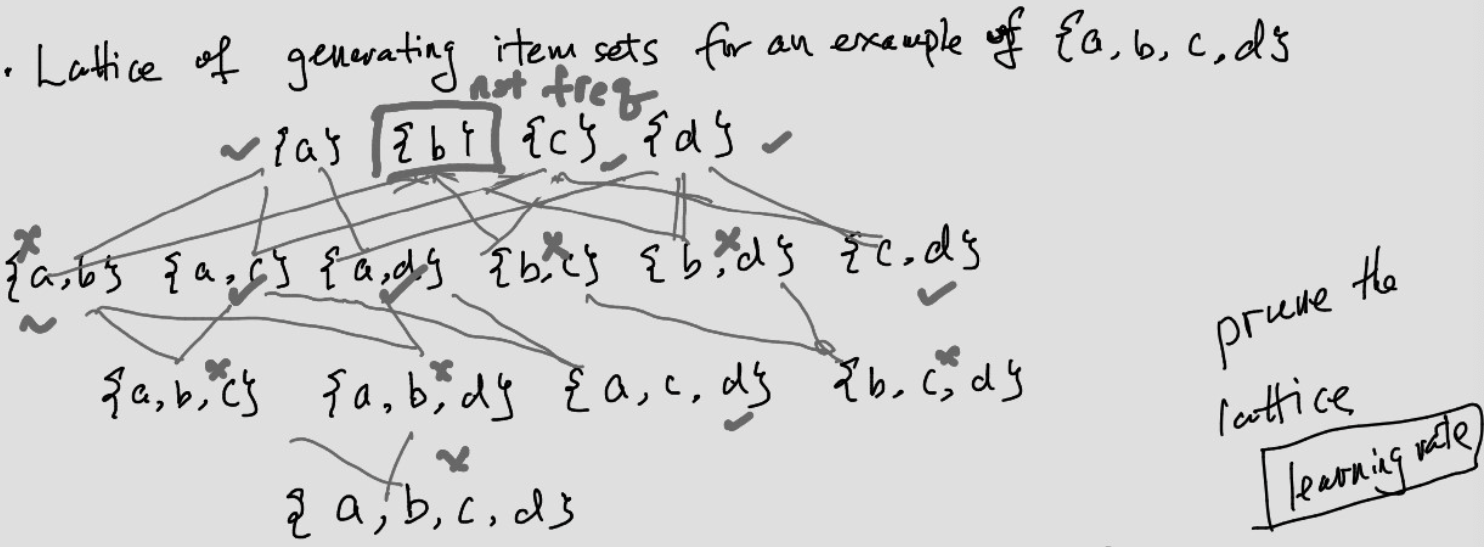 • Lattice of generating item sets for an example of {a, b, c, d}
not freq
✓ {a} {b} {c} ✓ {d} ✓
x x x
{a,b} {a,c} {a,d} {b,c} {b,d} {c,d}
~ ✓ ✓ ✓
x x x
{a,b,c} {a,b,d} {a,c,d} {b,c,d}
✓
x
{a,b,c,d}
prune the
lattice
learning rate